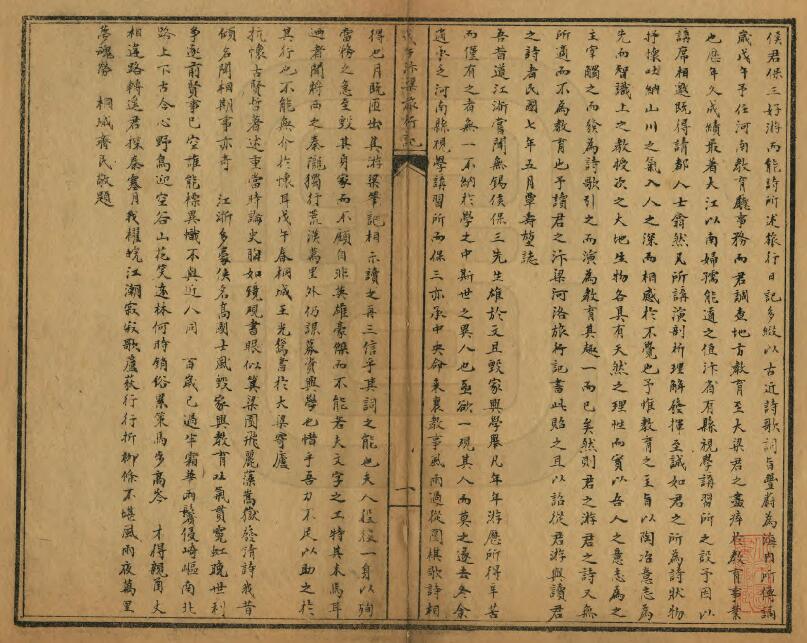 侯君保三好游而能詩所述旅行日記多綴以古近詩歌詞旨豐蔚為海內所傳誦
歲戊午予任河南教育廳事務而君調查地方教育至大梁君之盡瘁於教育事業
也歷年久成績最著大江以南婦孺能道之值汴省有縣視學講習所之設予因以
講席相邀既得請都人士翕然凡所講演剖析理解發揮至誠如君之所為詩狀物
抒懷吐納山川之氣入人之深而相感於不覺也予惟教育之主旨以陶冶意志為
先而智識上之教授次之大地生物各具有天然之理性而實以吾人之意志為之
主宰觸之而發為詩歌引之而演為教育其趣一而已矣然則君之游君之詩又無
所適而不為教育也予讀君之汴梁河洛旅行記書此貽之且以詒從君游與讀君
之詩者民國七年五月覃壽堃誌
吾昔道江浙嘗聞無錫侯保三先生雄於文且毀家興學舉凡年年游歷所得辛苦
而僅有之者無一不納於學之中斯世之異人也亟欲一現其人而莫之遂去冬余
適承乏河南縣視學講習所而保三亦承中央命來襄教事風雨過從圍棋歌詩相
汴梁旅行記
一
得也月既匝出其游梁筆記相示讀之再三信乎其詞之能也夫人投一身以殉
當務之急至毀其身家而不顧自非英雄豪傑而不能若夫文字之工特其末焉耳
迺者聞將西之秦隴獨行荒漠萬里外仍謀募資興學也惜乎吾力不足以助之於
其行也不能無介於懷耳戊午春桐城王光鸞書於大梁寄廬
抗懷古賢哲著述重當時論史胸如鏡觀書眼似箕梁園飛麗藻嵩嶽發清詩我昔
傾名聞相期事亦奇　江浙多豪俠名高國士風毀家興教育吐氣貫霓虹晚世利
爭逐前賢事已空誰能標異幟不與近人同　百歲已過半霜華兩鬢侵崎嶇南北
路上下古今心野鳥迎空谷山花笑遠林何時銷俗累策馬步高岑　才得親菌丈
相違路轉遙君探秦塞月我櫂皖江潮寂寂歌蘆荻行行折柳條不堪風雨夜萬里
夢魂勞　桐城齊民敬題